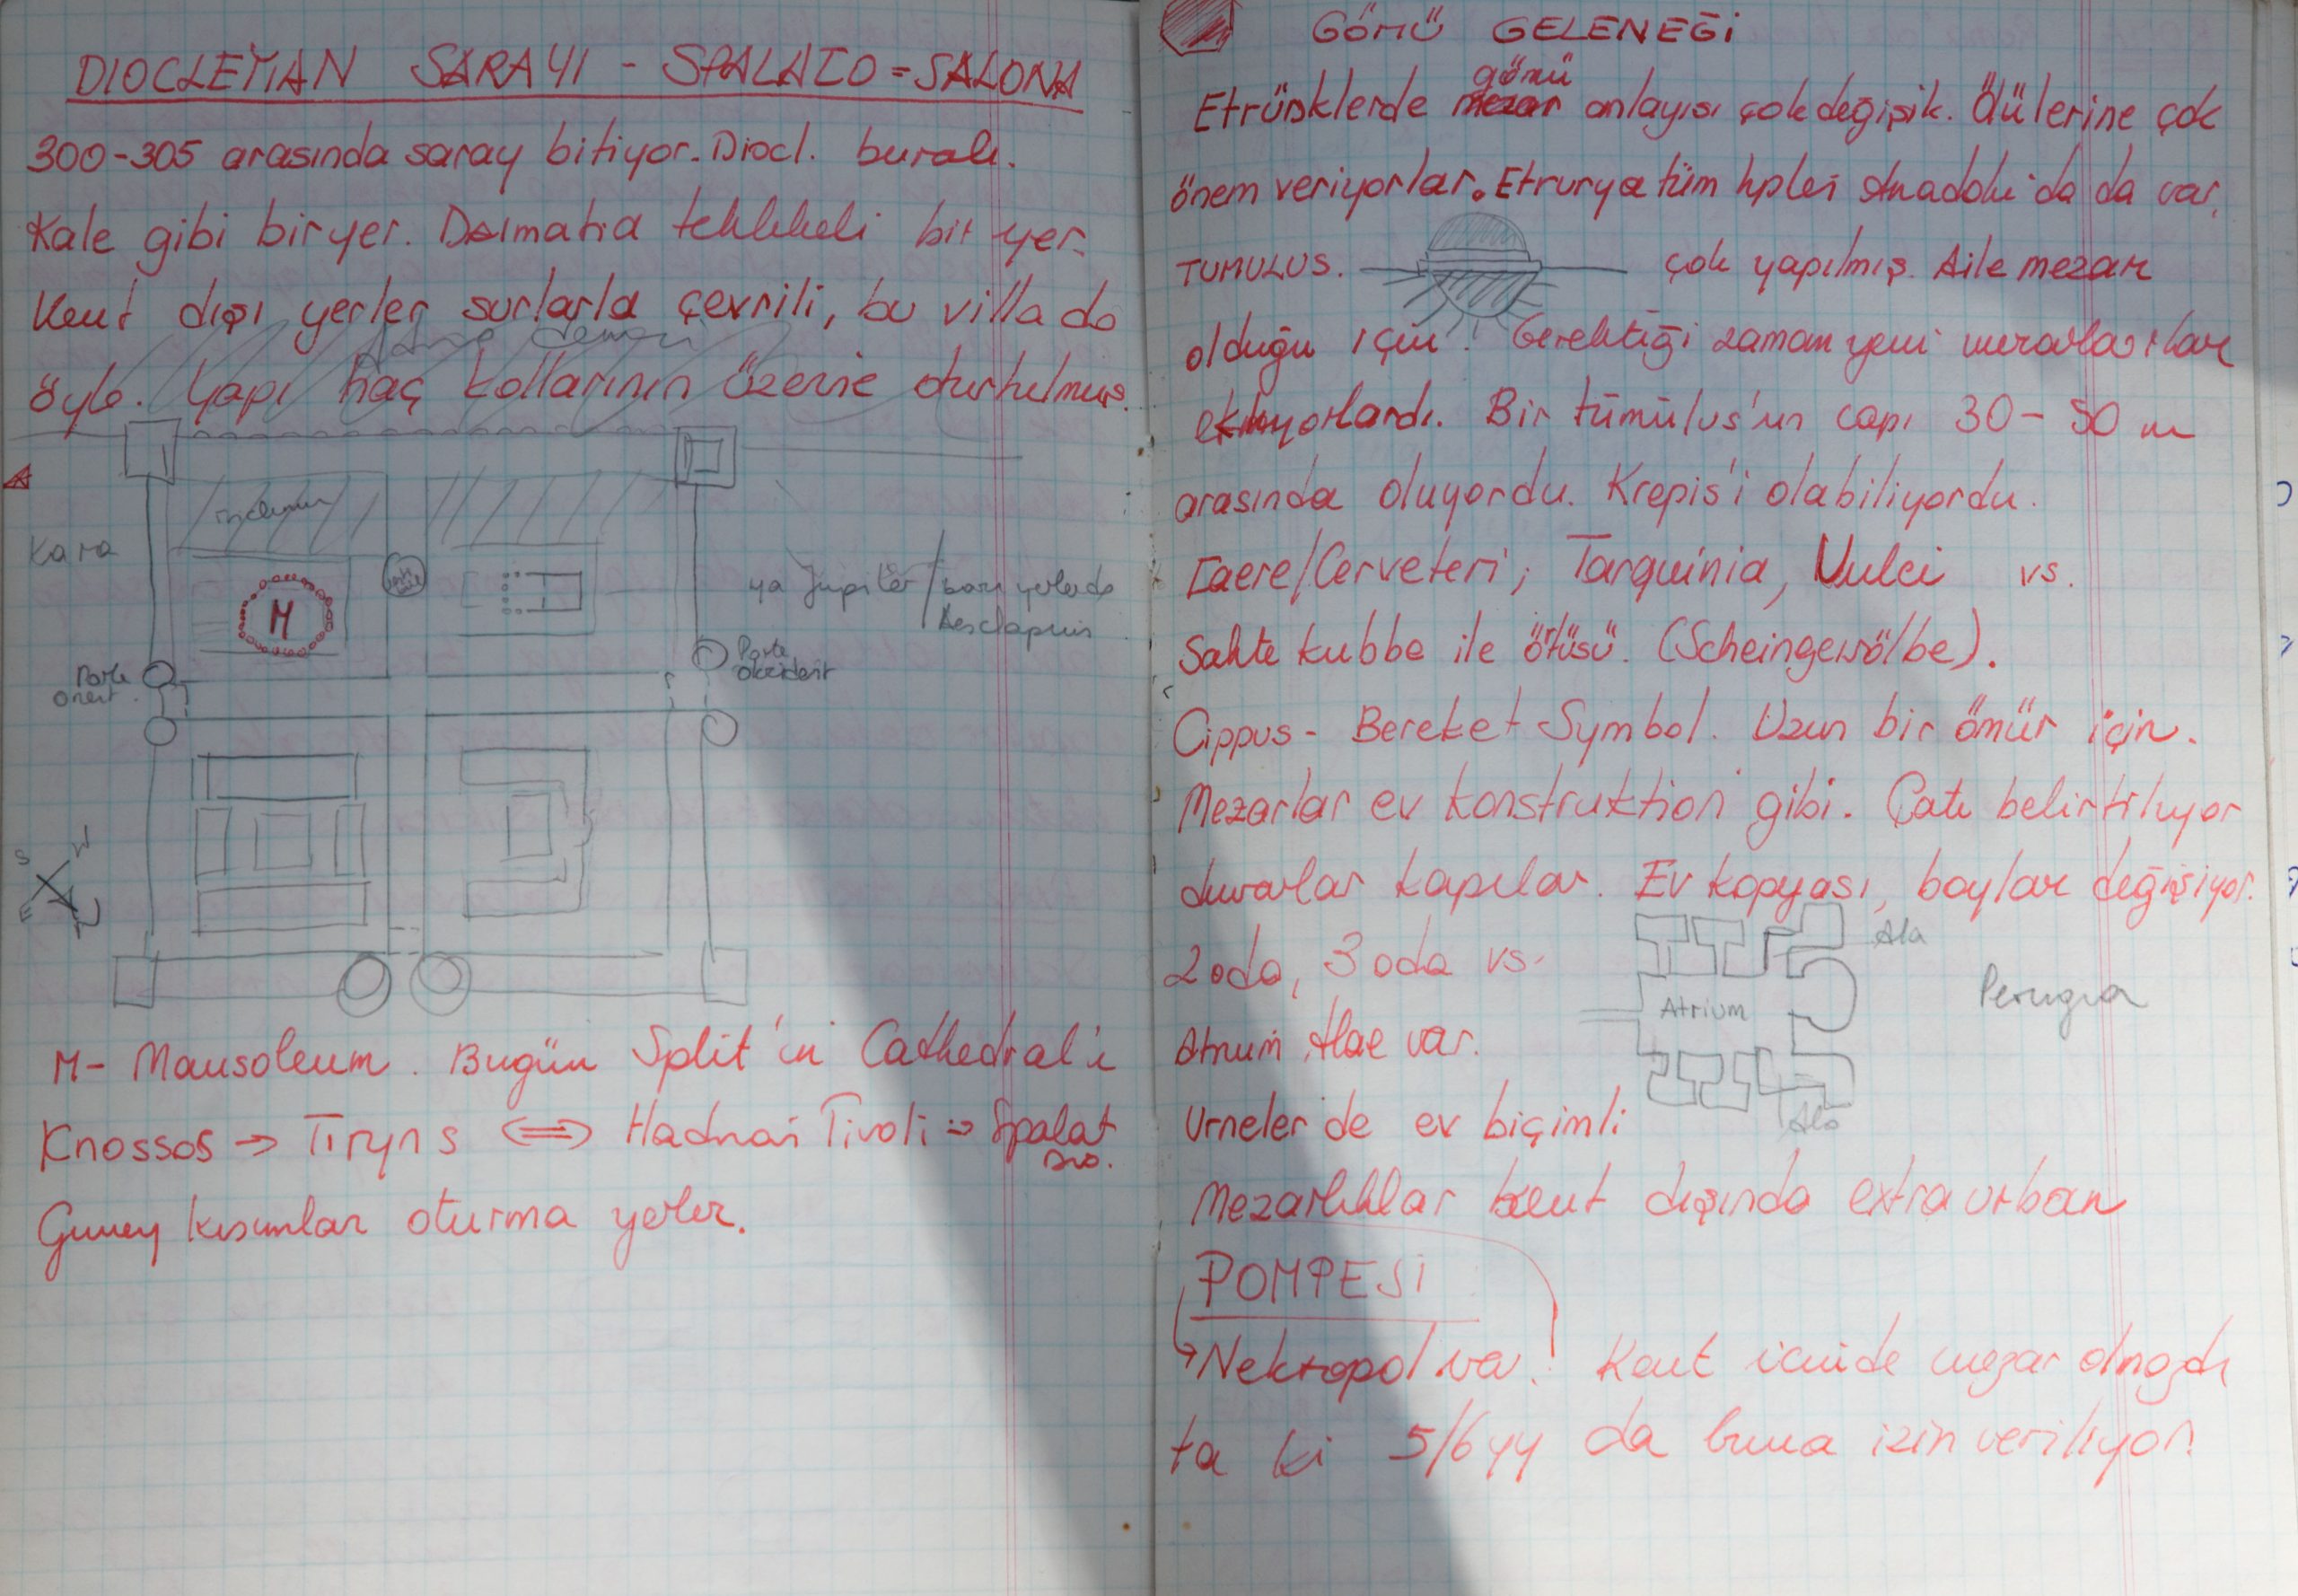 DIOCLETIAN SARAYI - SPALATO = SALONA
300-305 arasında saray bitiyor. Diocl. buralı.
Kale gibi bir yer. Dalmatia tehlikeli bir yer.
Kent dışı yerler surlarla çevrili, bu villa da
öyle. Yapı haç kollarının üzerine oturtulmuş.
Kara
M
ya Jupiter / bazı yerlerde
Aesclapius
Porte
orient.
Porte
occident
S W
E N
M- Mausoleum. Bugün Split'in Cathedral'i
Knossos → Tiryns ⇔ Hadrian Tivoli → Spalat
Guney kısımlar oturma yerler.
GÖMÜ GELENEĞİ
gömü
Etrüsklerde mezar anlayışı çok değişik. Ölülerine çok
önem veriyorlar. Etrurya tüm tipleri Anadolu'da da var.
TUMULUS. çok yapılmış. Aile mezarı
olduğu için. Gerektiği zaman yeni
ekliyorlardı. Bir tümülüs'ün çapı 30-50 m
arasında oluyordu. Krepis'i olabiliyordu.
Caere/Cerveteri, Tarquinia, Vulci vs.
Sahte kubbe ile örtüsü. (Scheingewölbe).
Cippus - Bereket Symbol. Uzun bir ömür için.
Mezarlar ev konstruktion gibi. Çatı belirtiliyor
duvarlar kapılar. Ev kopyası, boylar değişiyor.
2 oda, 3 oda vs.
Ala
Atrium
Perugia
Atrium, Alae var.
Ala
Urneler de ev biçimli
Mezarlıklar kent dışında extra urban
POMPEJİ
→ Nektropol var. Kent içinde mezar olmazdı
ta ki 5/6 yy da buna izin veriliyor.